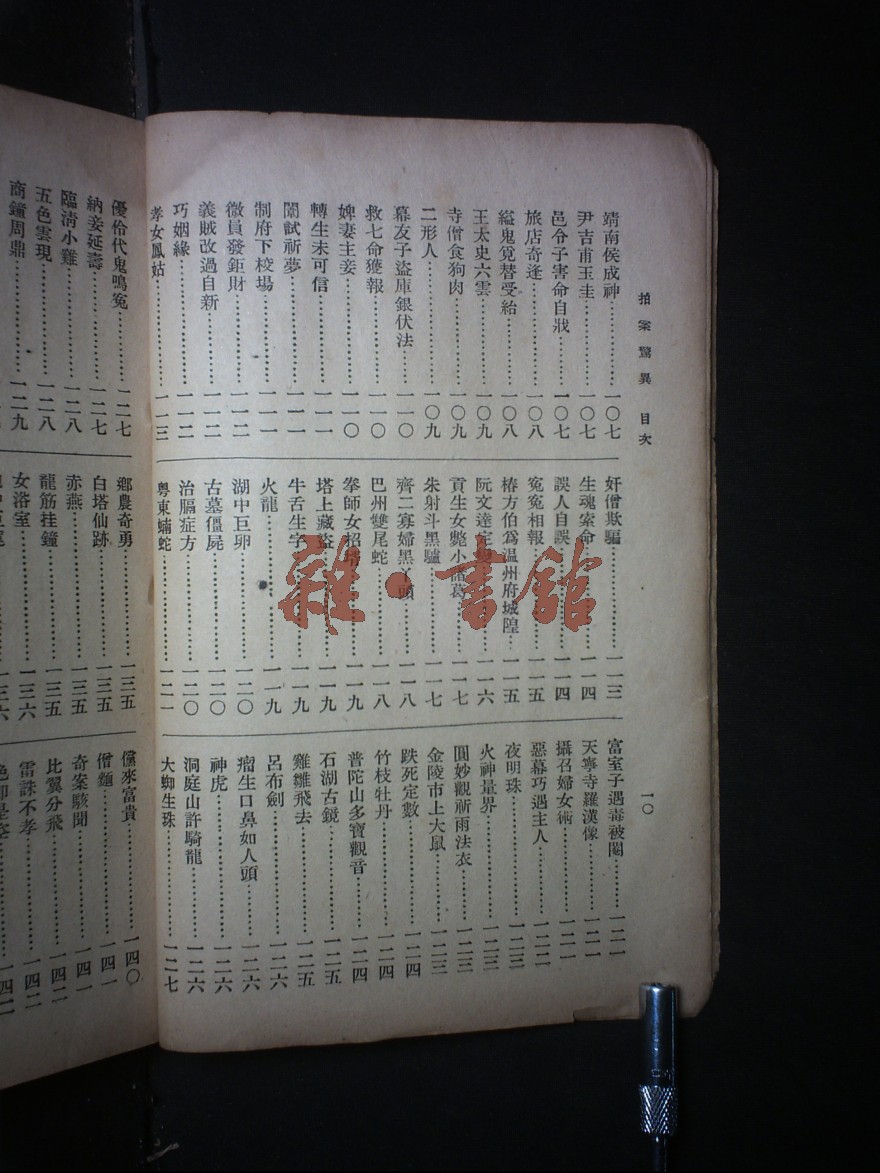 拍案驚異 目次
一〇
靖南侯成神……一〇七
尹吉甫玉圭……一〇七
邑令子害命自戕……一〇七
旅店奇逢……一〇八
縊鬼覓替受給……一〇八
王太史六雲……一〇九
寺僧食狗肉……一〇九
二形人……一〇九
幕友子盜庫銀伏法……一一〇
救七命獲報……一一〇
婢妻主妾……一一〇
轉生未可信……一一一
闈試祈夢……一一一
制府下校場……一一一
微員發鉅財……一一二
義賊改過自新……一一二
巧姻緣……一一二
孝女鳳姑……一一三
奸僧欺騙……一一三
生魂索命……一一四
誤人自誤……一一四
冤冤相報……一一五
椿方伯爲温州府城隍……一一五
阮文達定……一一六
貢生女斃小諸葛……一一七
朱射斗黑驢……一一七
齊二寡婦黑丫頭……一一八
巴州雙尾蛇……一一八
拳師女招壻……一一九
塔上藏盜……一一九
牛舌生字……一一九
火龍……一一九
湖中巨卵……一二〇
古墓僵屍……一二〇
治膈症方……一二〇
粵東蝻蛇……一二一
富室子遇毒被閹……一二一
天寧寺羅漢像……一二一
攝召婦女術……一二一
惡幕巧遇主人……一二二
夜明珠……一二三
火神量界……一二三
圓妙觀祈雨法衣……一二三
金陵市上大鼠……一二三
跌死定數……一二四
竹枝牡丹……一二四
普陀山多寶觀音……一二四
石湖古鏡……一二五
雞雛飛去……一二五
呂布劍……一二六
瘤生口鼻如人頭……一二六
神虎……一二六
洞庭山許騎龍……一二六
大蜘生珠……一二七
優伶代鬼鳴冤……一二七
納妾延壽……一二七
臨清小雞……一二八
五色雲現……一二八
商鐘周鼎……一二九
鄉農奇勇……一三五
白塔仙跡……一三五
赤燕……一三五
龍筋挂鐘……一三五
女浴室……一三六
儻來富貴……一四〇
僧麵……一四一
奇案駭聞……一四一
比翼分飛……一四二
雷誅不孝……一四二
雜·書館